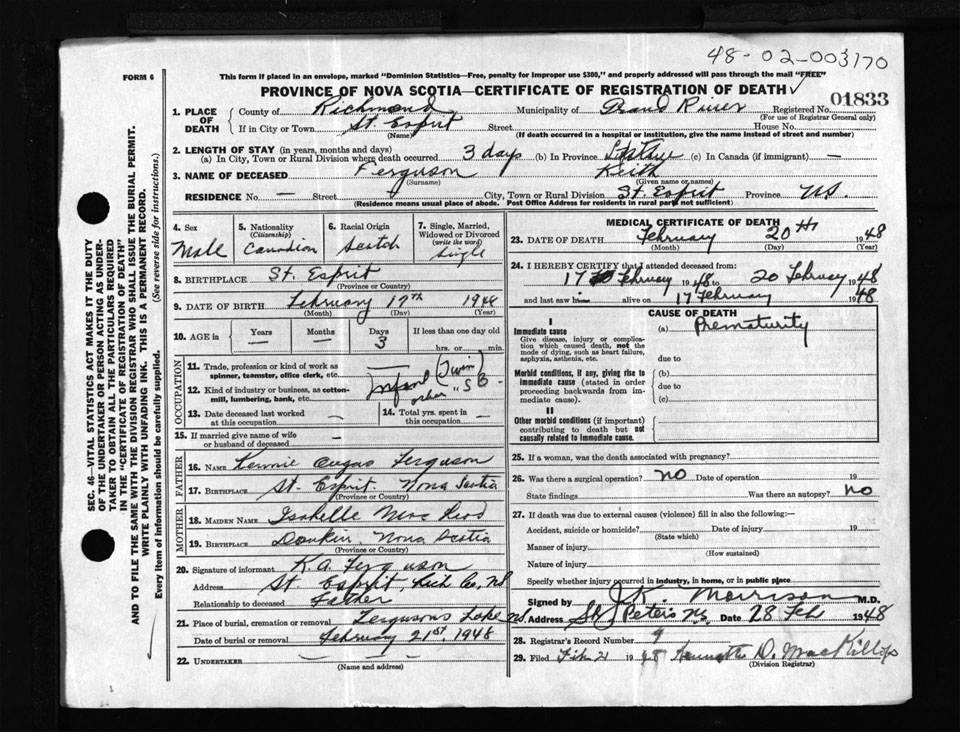 48-02-003170
FORM 6
This form if placed in an envelope, marked "Dominion Statistics—Free, penalty for improper use $300," and properly addressed will pass through the mail "FREE"
PROVINCE OF NOVA SCOTIA—CERTIFICATE OF REGISTRATION OF DEATH
1. PLACE OF DEATH
County of Richmond Municipality of Grand River Registered No. 01833
(For use of Registrar General only)
If in City or Town St. Esprit Street House No.
(Name) (If death occurred in a hospital or institution, give the name instead of street and number)
2. LENGTH OF STAY (in years, months and days)
(a) In City, Town or Rural Division where death occurred 3 days (b) In Province Lifetime (c) In Canada (if immigrant) —
3. NAME OF DECEASED Ferguson Keith
(Surname) (Given name or names)
RESIDENCE No. — Street City, Town or Rural Division St. Esprit Province NS.
(Residence means usual place of abode. Post Office Address for residents in rural parts not sufficient)
4. Sex Male
5. Nationality (Citizenship) Canadian
6. Racial Origin Scotch
7. Single, Married, Widowed or Divorced (write the word) Single
8. BIRTHPLACE St. Esprit
(Province or Country)
9. DATE OF BIRTH February 17th 1948
(Month) (Day) (Year)
10. AGE in Years — Months — Days 3 If less than one day old hrs. or min.
OCCUPATION
11. Trade, profession or kind of work as spinner, teamster, office clerk, etc.
12. Kind of industry or business, as cotton-mill, lumbering, bank, etc.
Infant (Twin
other " SB
13. Date deceased last worked at this occupation —
14. Total yrs. spent in this occupation —
15. If married give name of wife or husband of deceased —
FATHER
16. NAME Kennie Angus Ferguson
17. BIRTHPLACE St. Esprit Nova Scotia
(Province or Country)
MOTHER
18. MAIDEN NAME Isabelle MacLeod
19. BIRTHPLACE Donkin, Nova Scotia
(Province or Country)
20. Signature of informant K. A. Ferguson
Address St. Esprit, Rich Co, NS
Relationship to deceased Father
21. Place of burial, cremation or removal Fergusons Lake NS.
Date of burial or removal February 21st, 1948
22. UNDERTAKER —
(Name and address)
MEDICAL CERTIFICATE OF DEATH
23. DATE OF DEATH February 20th 1948
(Month) (Day) (Year)
24. I HEREBY CERTIFY that I attended deceased from:
17 February 1948 to 20 February 1948
and last saw him alive on 17 February 1948
CAUSE OF DEATH
I
Immediate cause
Give disease, injury or complication which caused death, not the mode of dying, such as heart failure, asphyxia, asthenia, etc.
(a) Prematurity
due to
Morbid conditions, if any, giving rise to immediate cause (stated in order proceeding backwards from immediate cause).
(b)
due to
(c)
II
Other morbid conditions (if important) contributing to death but not causally related to immediate cause.
25. If a woman, was the death associated with pregnancy?
26. Was there a surgical operation? No Date of operation 19
State findings Was there an autopsy? No
27. If death was due to external causes (violence) fill in also the following:
Accident, suicide or homicide? Date of injury 19
(State which)
Manner of injury
(How sustained)
Nature of injury
Specify whether injury occurred in industry, in home, or in public place
Signed by J. K. Morrison M.D.
Address St. Peters NS Date 28 Feb 1948
28. Registrar's Record Number 9
29. Filed Feb 21 1948 Kenneth D. MacKillop
(Division Registrar)
SEC. 46—VITAL STATISTICS ACT MAKES IT THE DUTY
OF THE UNDERTAKER OR PERSON ACTING AS UNDERTAKER
TO OBTAIN ALL THE PARTICULARS REQUIRED
IN THE "CERTIFICATE OF REGISTRATION OF DEATH"
AND TO FILE THE SAME WITH THE DIVISION REGISTRAR WHO SHALL ISSUE THE BURIAL PERMIT.
WRITE PLAINLY WITH UNFADING INK. THIS IS A PERMANENT RECORD.
Every item of information should be carefully supplied. (See reverse side for instructions.)